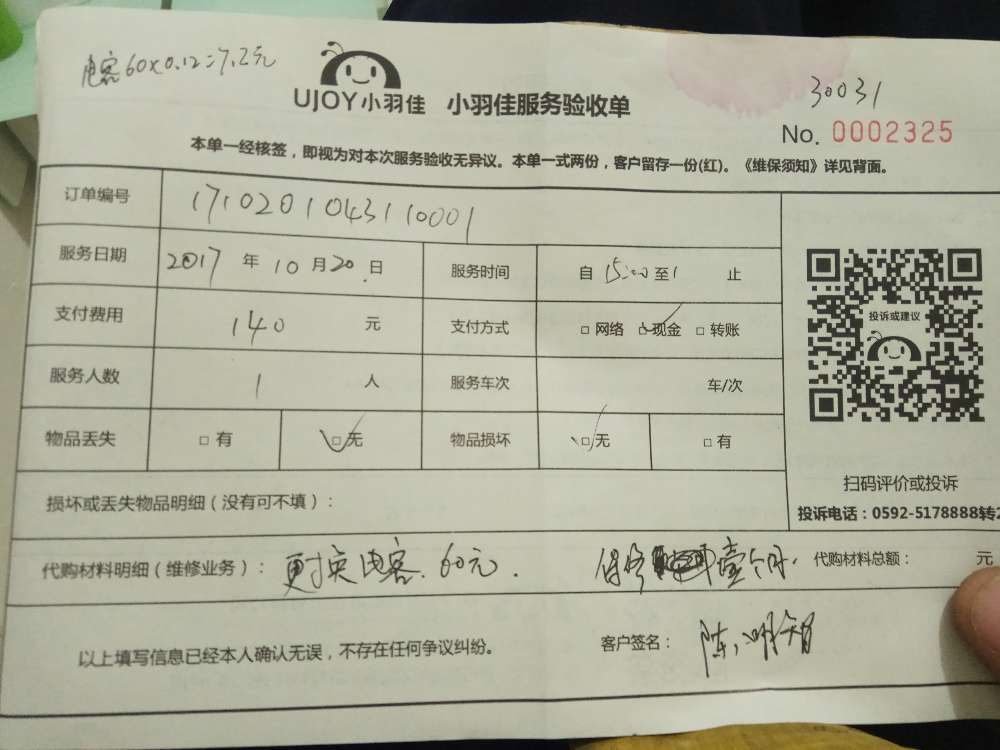 电容60×0.12=7.2元
UJOY小羽佳 小羽佳服务验收单
30031
No. 0002325
本单一经核签，即视为对本次服务验收无异议。本单一式两份，客户留存一份(红)。《维保须知》详见背面。
订单编号 1710201043110001
服务日期 2017 年 10 月 20 日 服务时间 自 15:00 至 1 止
投诉或建议
支付费用 140 元 支付方式 □ 网络 □ 现金 □ 转账
服务人数 1 人 服务车次 车/次
物品丢失 □ 有 □ 无 物品损坏 □ 无 □ 有
扫码评价或投诉
损坏或丢失物品明细（没有可不填）：
投诉电话：0592-5178888转2
代购材料明细（维修业务）： 更换电容. 60元. 保修 壹个月. 代购材料总额： 元
以上填写信息已经本人确认无误，不存在任何争议纠纷。 客户签名： 陈